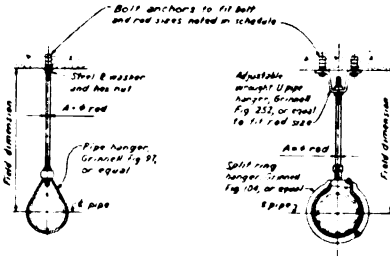 Bolt anchors to fit bolt
and rod sizes noted in schedule
Steel & washer
and hex nut
A-ø rod
Field dimension
Pipe hanger,
Grinnell Fig 97,
or equal
¢ pipe
Adjustable
wrought U pipe
hanger, Grinnell
Fig 252, or equal
to fit rod size
A-ø rod
Split ring
hanger Grinned
Fig 104, or equal
¢ pipe
Field dimension